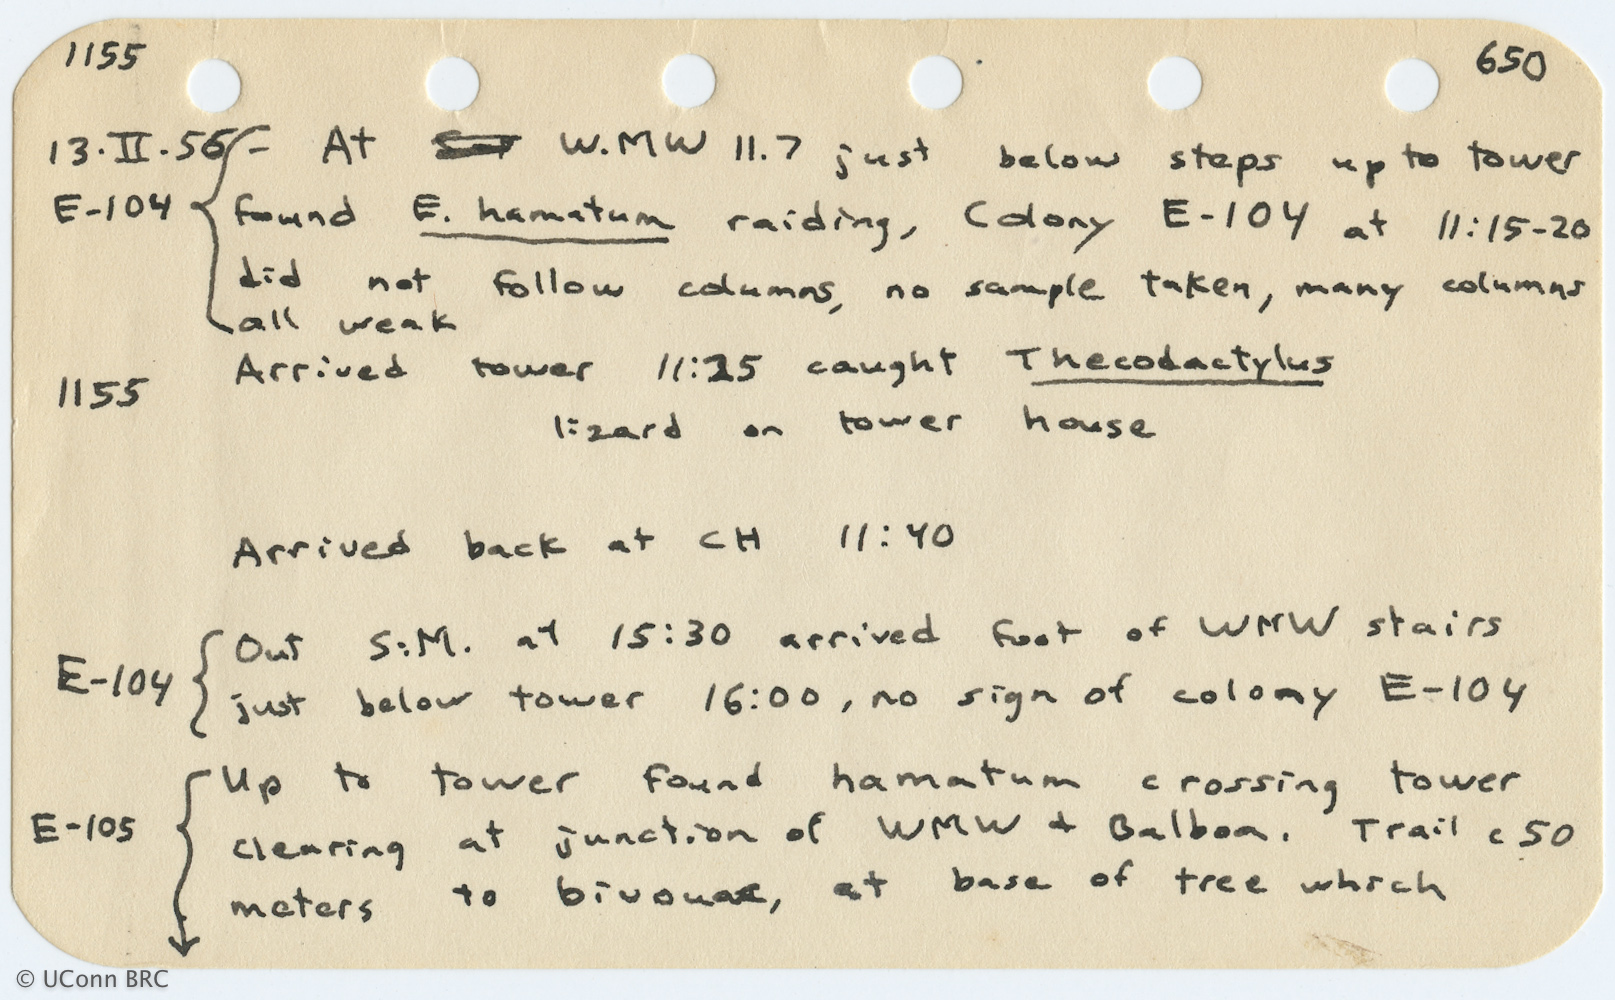 1155 650
13.II.56 - At W.MW 11.7 just below steps up to tower
E-104 found E. hamatum raiding, Colony E-104 at 11:15-20
did not follow columns, no sample taken, many columns
all weak
Arrived tower 11:25 caught Thecodactylus
1155
lizard on tower house
Arrived back at CH 11:40
Out S.M. at 15:30 arrived foot of WMW stairs
E-104 just below tower 16:00, no sign of colony E-104
Up to tower found hamatum crossing tower
E-105 clearing at junction of WMW + Balboa. Trail c 50
meters to bivouac, at base of tree which
© UConn BRC